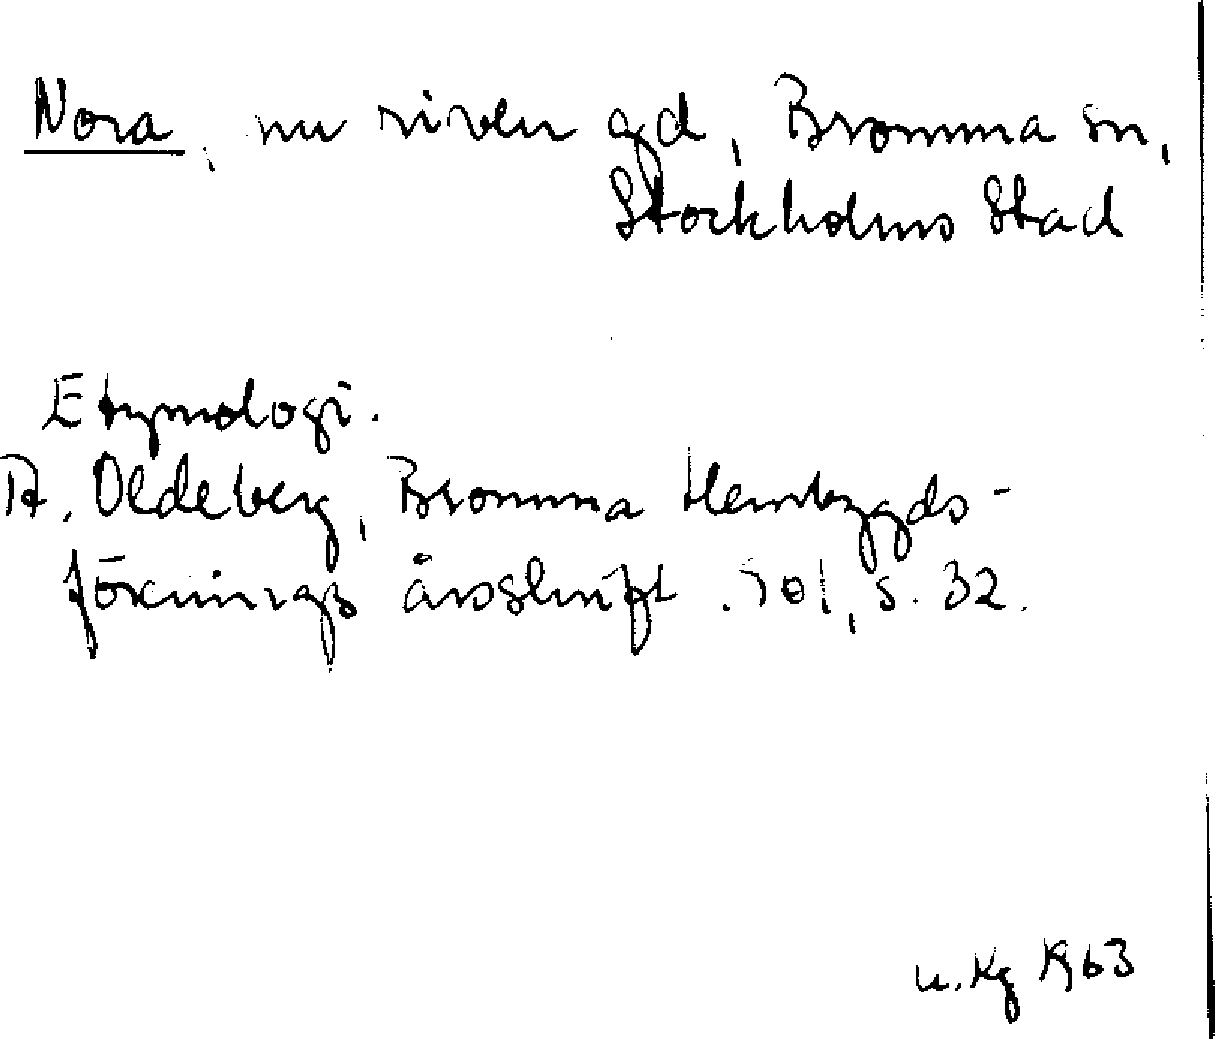 Nora, nu riven gd, Bromma sn,
Stockholms Stad
Etymologi.
A. Oldeberg, Bromma Hembygds-
förenings årsskrift . s. 32.
u. Kg 1963